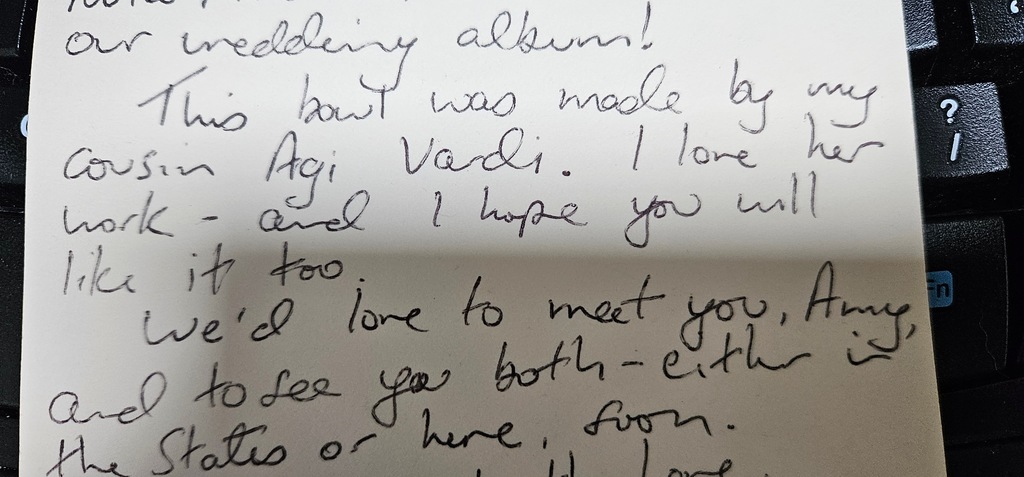 our wedding album!
This bowl was made by my
cousin Agi Vardi. I love her
work - and I hope you will
like it too.
We'd love to meet you, Amy,
and to see you both - either in
the States or here, soon.
love
?
/
Fn